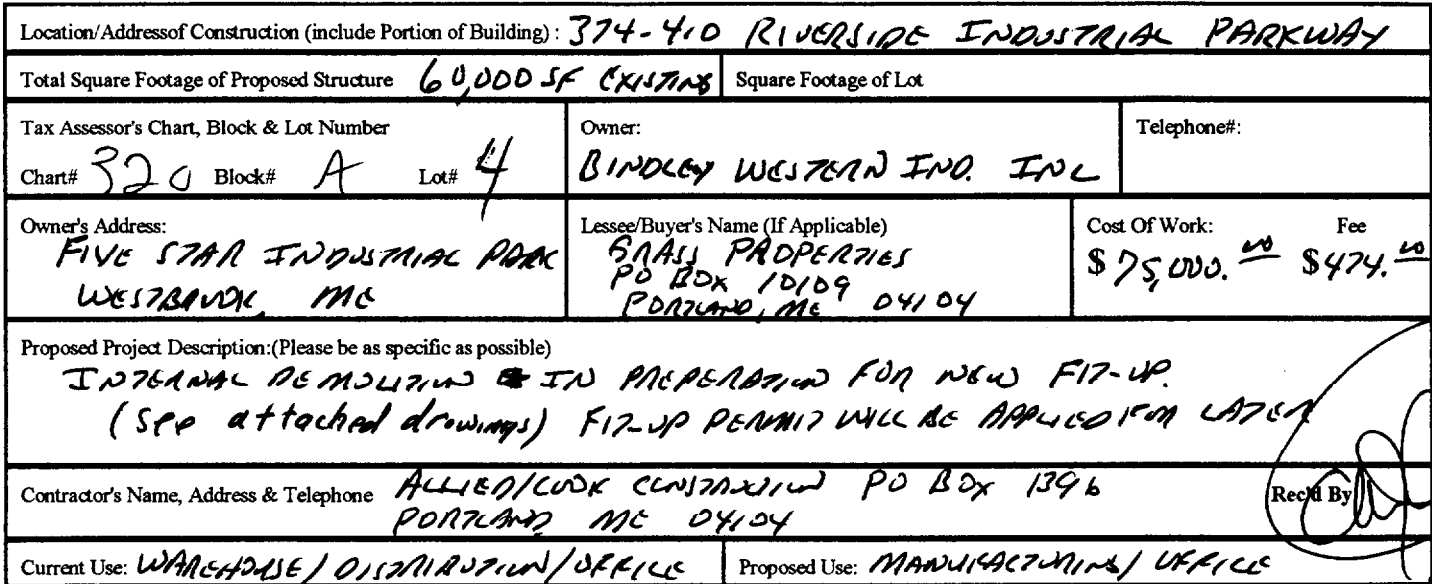 Location/Addressof Construction (include Portion of Building) : 374-410 RIVERSIDE INDUSTRIAL PARKWAY
Total Square Footage of Proposed Structure 60,000 SF EXISTING Square Footage of Lot
Tax Assessor's Chart, Block & Lot Number Owner: Telephone#:
Chart# 320 Block# A Lot# 4 BINDLEY WESTERN IND. INC
Owner's Address: Lessee/Buyer's Name (If Applicable) Cost Of Work: Fee
FIVE STAR INDUSTRIAL PARK GRASS PROPERTIES $75,000.00 $474.00
WESTBROOK, ME PO BOX 10109
PORTLAND, ME 04104
Proposed Project Description:(Please be as specific as possible)
INTERNAL DEMOLITION IN PREPERATION FOR NEW FIT-UP.
(See attached drawings) FIT-UP PERMIT WILL BE APPLIED FOR LATER
Contractor's Name, Address & Telephone ALLIED/COOK CONSTRUCTION PO BOX 1396
PORTLAND, ME 04104
Rec'd By
Current Use: WAREHOUSE/DISTRIBUTION/OFFICE Proposed Use: MANUFACTURING/OFFICE